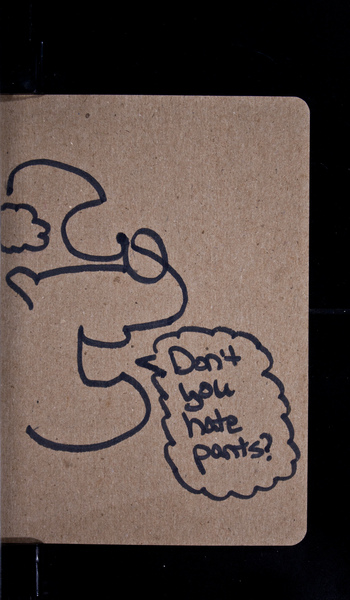 Don't
you
hate
pants?